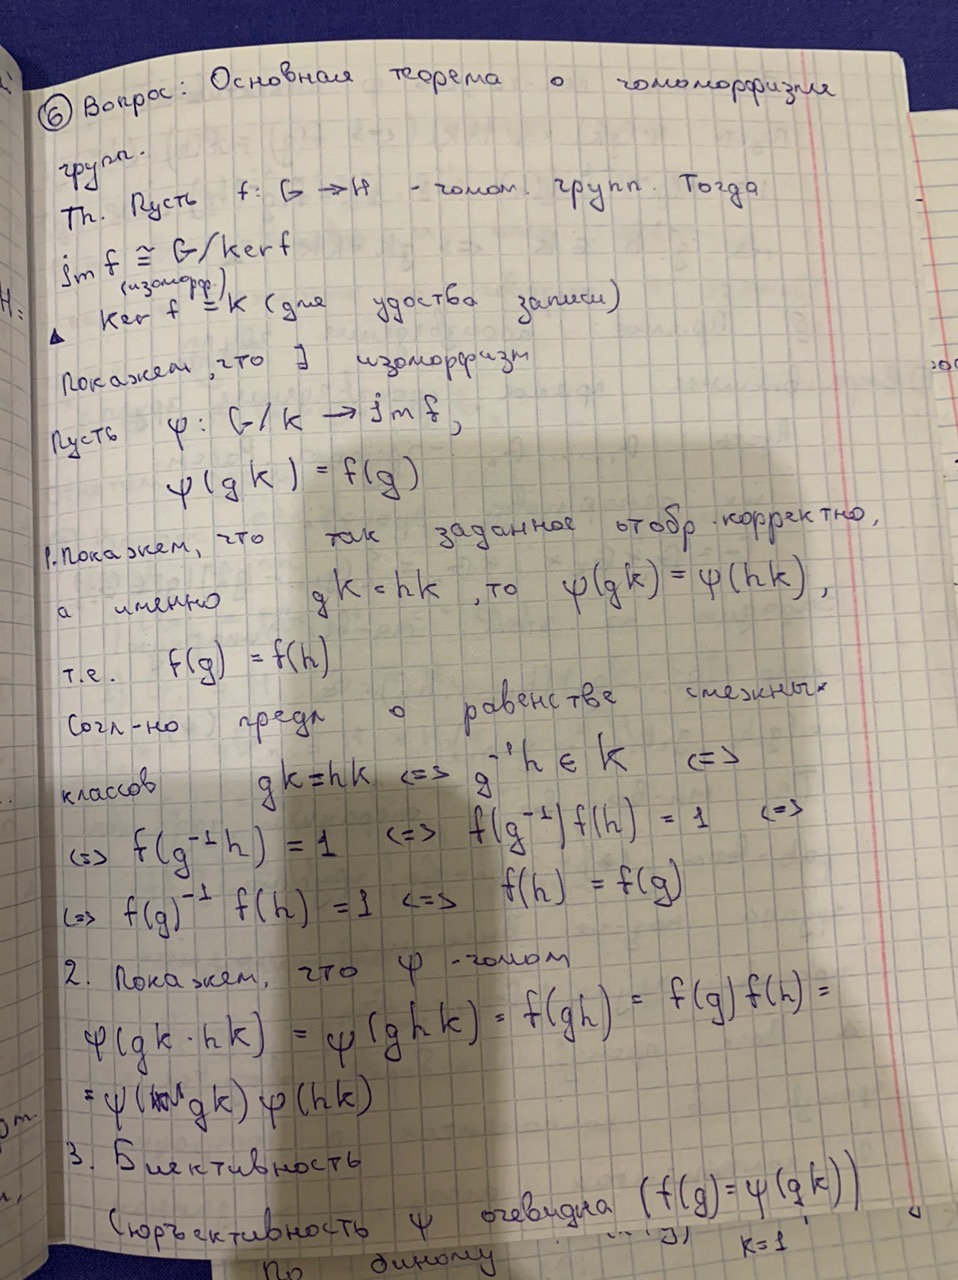 ⑥ Вопрос: Основная теорема о гомоморфизме
групп.
Th. Пусть f: G → H - гомом. групп. Тогда
im f ≅ G/ker f
(изоморф.)
▲ Ker f = K (для удоства записи)
Покажем, что ∃ изоморфизм
Пусть φ: G/K → im f,
φ(gK) = f(g)
1. Покажем, что так заданное отобр. корректно,
а именно gK = hK, то φ(gK) = φ(hK),
т.е. f(g) = f(h)
Согл-но предл о равенстве смежных
классов gK = hK <=> g⁻¹h ∈ K <=>
<=> f(g⁻¹h) = 1 <=> f(g⁻¹)f(h) = 1 <=>
<=> f(g)⁻¹ f(h) = 1 <=> f(h) = f(g)
2. Покажем, что φ - гомом
φ(gK · hK) = φ(ghK) = f(gh) = f(g)f(h) =
= φ(gK)φ(hK)
3. Биективность
Сюръективность φ очевидна (f(g) = φ(gK))
По биному
K=1
H: